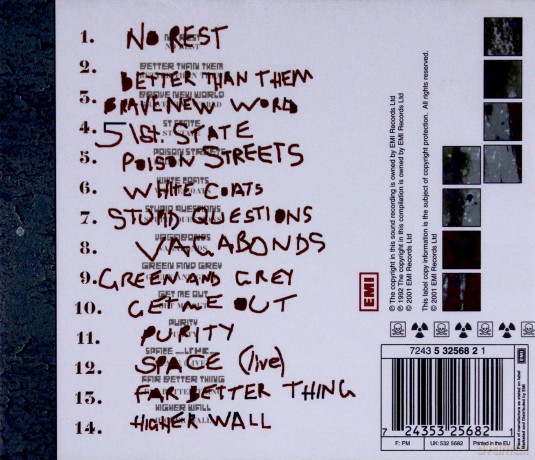 1. NO REST
2. BETTER THAN THEM
3. BRAVE NEW WORD
4. 51st STATE
5. POISON STREETS
6. WHITE COATS
7. STUPID QUESTIONS
8. VAGABONDS
9. GREEN AND GREY
10. GET ME OUT
11. PURITY
12. SPACE (live)
13. FAR BETTER THING
14. HIGHER WALL
℗ The copyright in this sound recording is owned by EMI Records Ltd
℗ 1992 The copyright in this compilation is owned by EMI Records Ltd
© 2001 EMI Records Ltd
This label copy information is the subject of copyright protection. All rights reserved.
© 2001 EMI Records Ltd
EMI
7243 5 32568 2 1
EMI
7 24353 25682
F: PM
UK: 532 5682
Printed in the EU